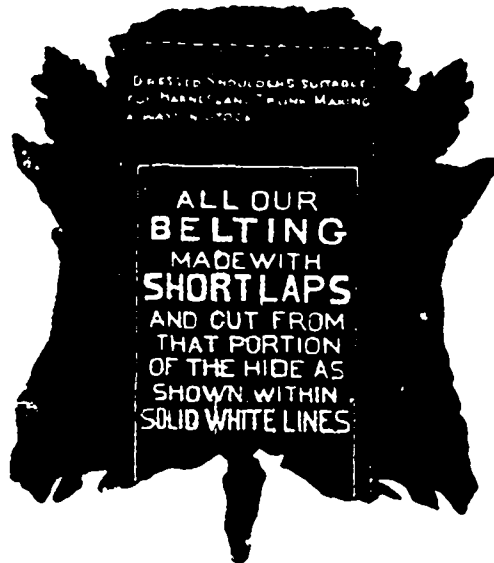 DRESSED SHOULDERS SUITABLE
FOR HARNESS AND TRUNK MAKING
ALWAYS IN STOCK
ALL OUR
BELTING
MADE WITH
SHORT LAPS
AND CUT FROM
THAT PORTION
OF THE HIDE AS
SHOWN WITHIN
SOLID WHITE LINES